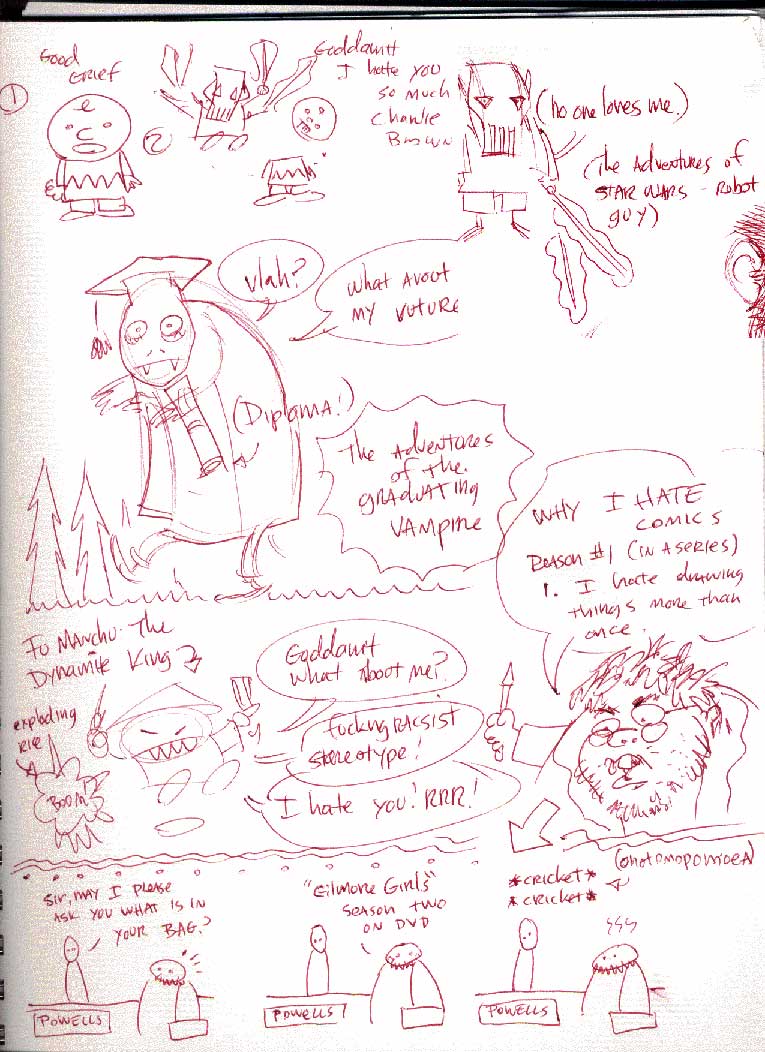 1
GOOD
GRIEF
2
GODDAMIT
I hate you
so much
Charlie
Brown
(no one loves me.)
(The Adventures of
STAR WARS - Robot
guy)
vlah?
what avout
my vuture
(Diploma!)
The Adventures
of the
graduating
vampire
WHY I HATE
comics
Reason #1 (in a series)
1. I hate drawing
things more than
once.
Fu Manchu: The
Dynamite King
exploding
BOOM
Goddamit
what about me?
fucking racsist
stereotype!
I hate you! RRR!
(onotomopomoea)
Sir, may I please
ask you what is in
your bag?
POWELLS
"Gilmore Girls"
season two
on DVD
POWELLS
*cricket*
*cricket*
POWELLS